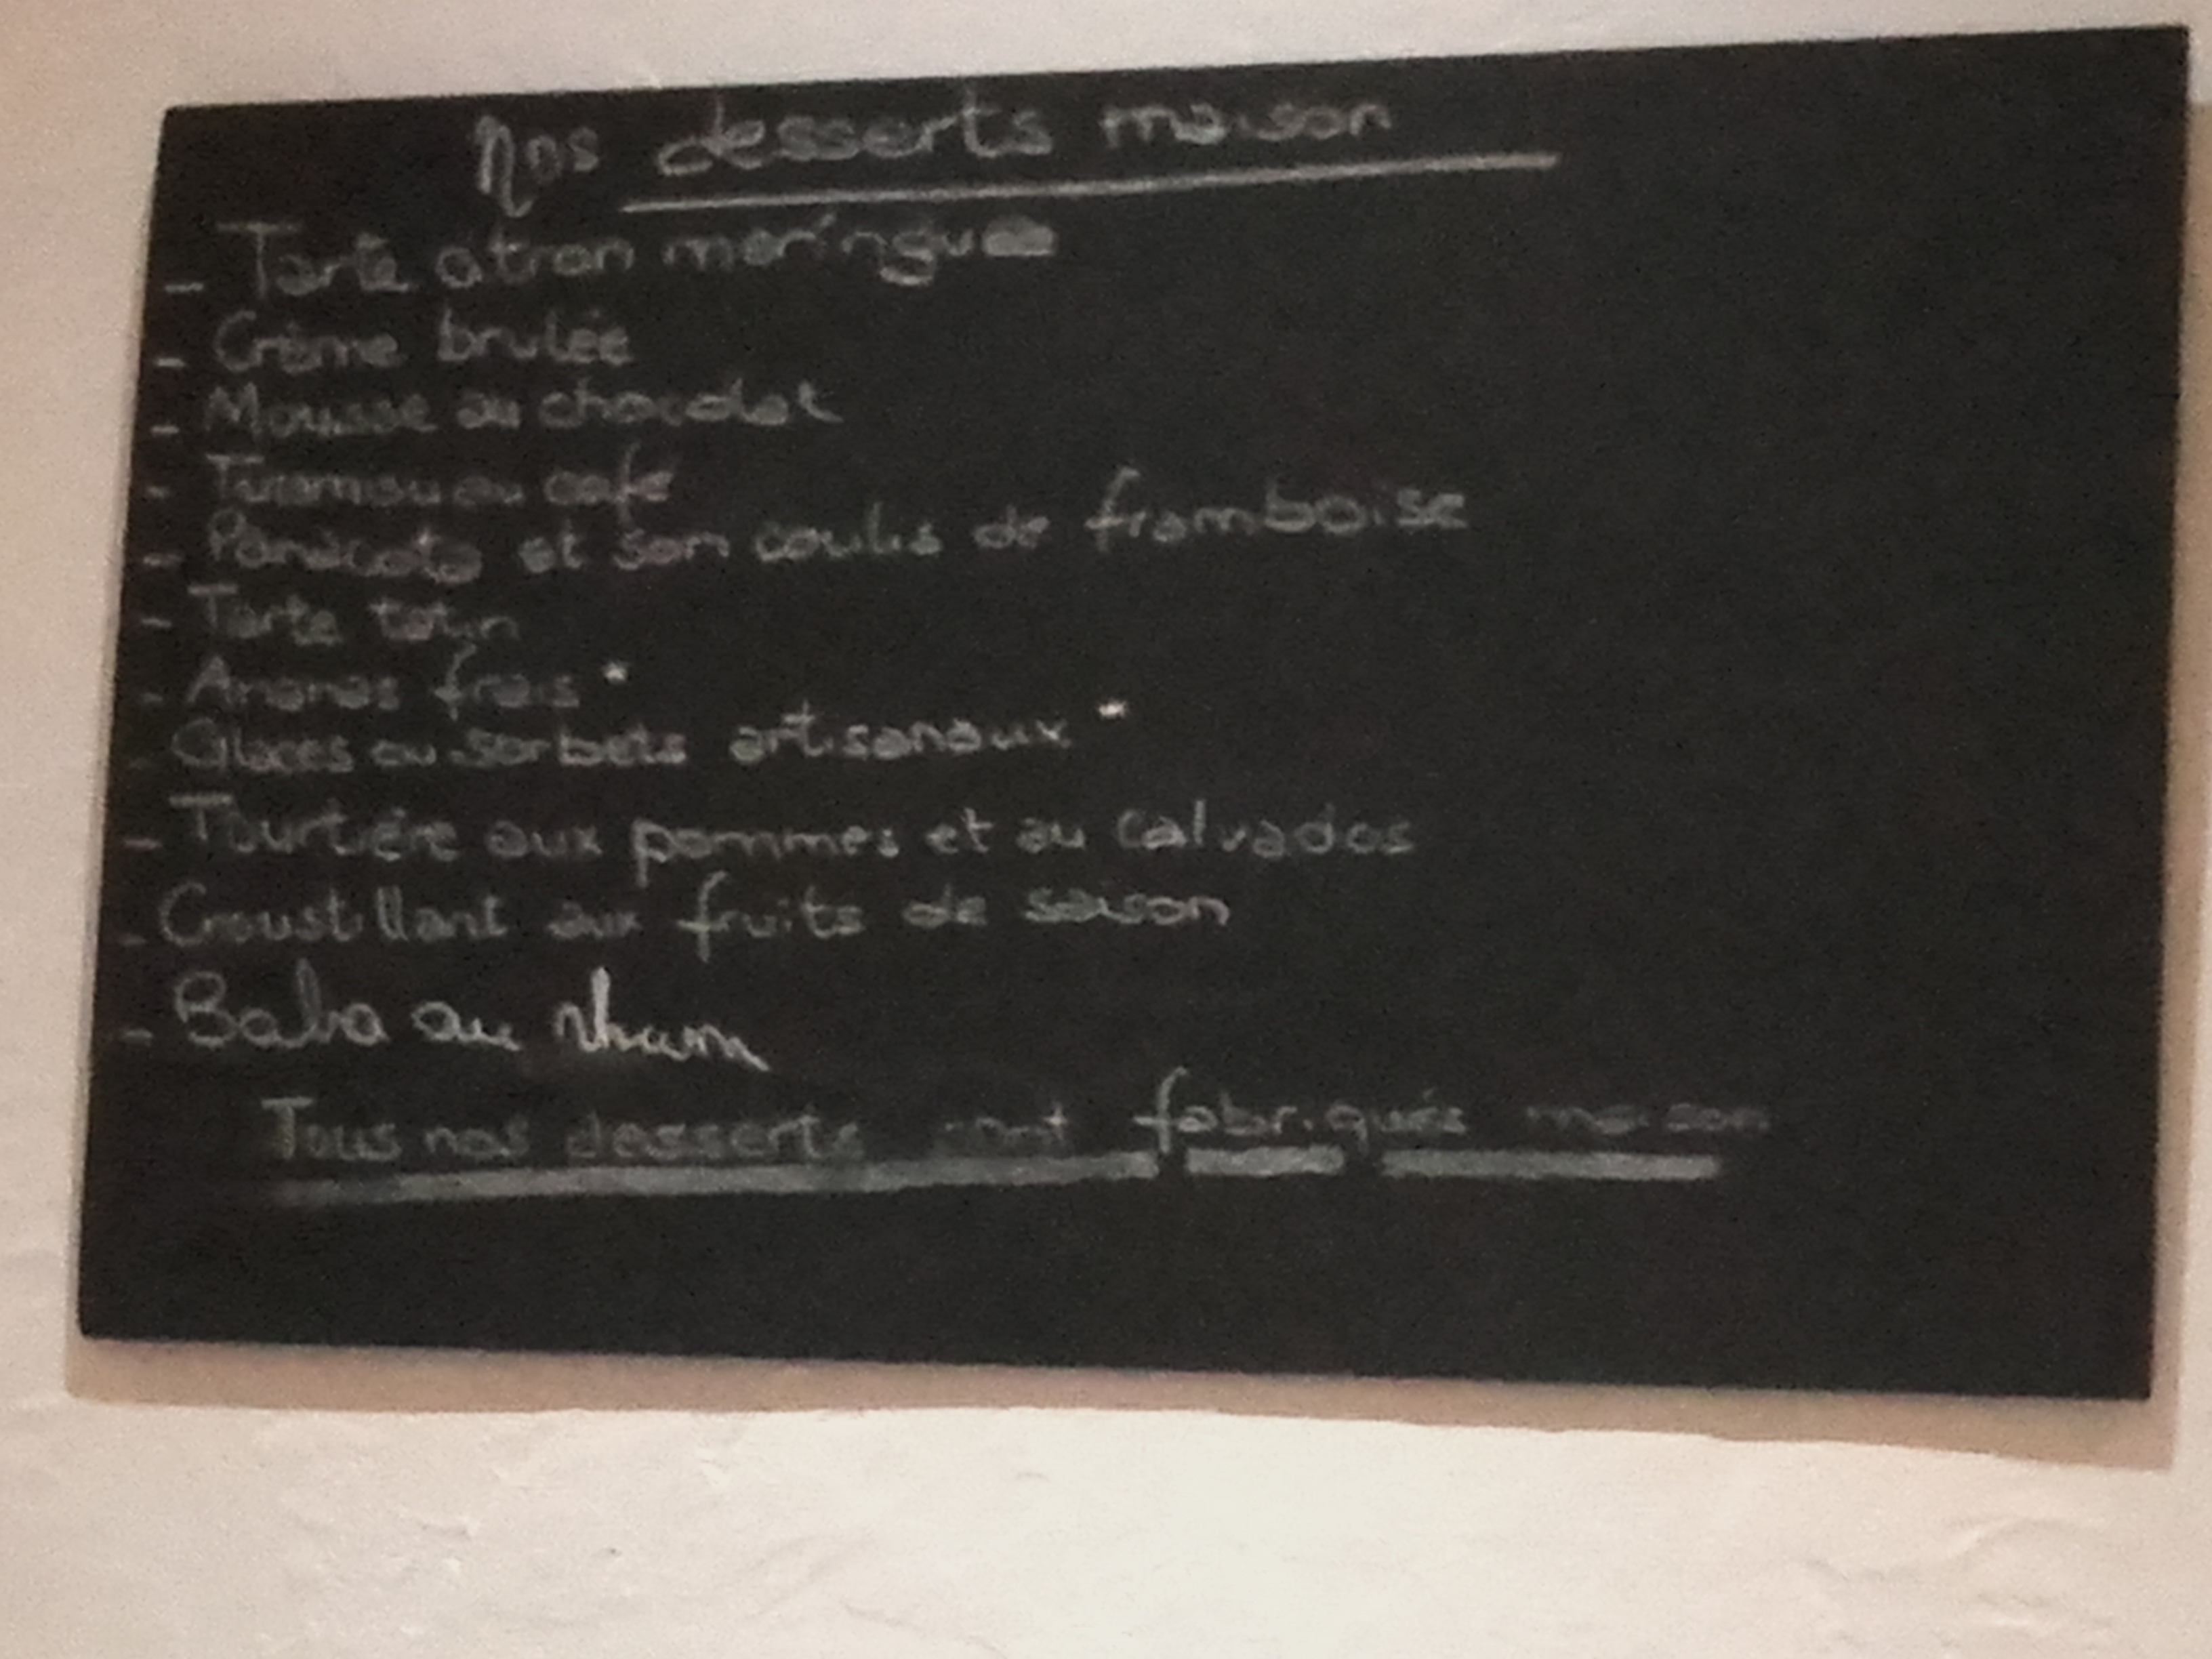 Nos desserts maison
- Tarte citron meringuée
- Crème brulée
- Mousse au chocolat
- Tiramisu au café
- Panacota et son coulis de framboise
- Tarte tatin
- Ananas frais *
- Glaces ou sorbets artisanaux *
- Tourtière aux pommes et au calvados
- Croustillant aux fruits de saison
- Baba au rhum
Tous nos desserts sont fabriqués maison